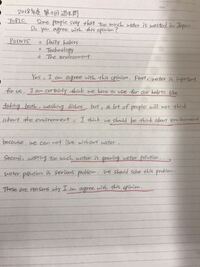 2018年度 第1回 過去問
TOPIC Some people say that too much water is wasted in Japan.
Do you agree with this opinion?
POINTS • Daily habits
• Technology
• The environment
Yes, I agree with this opinion. First water is important
for us. I am certainly think we have to use for our habits like
taking bath, washing dishes. but, a lot of people will not think
about the environment. I think we should be think about environment
because we can not live without water.
Second, wasting too much water is pouring water pollution.
water pollution is serious problem. We should solve this problem.
These are reasons why I am agree with this opinion.